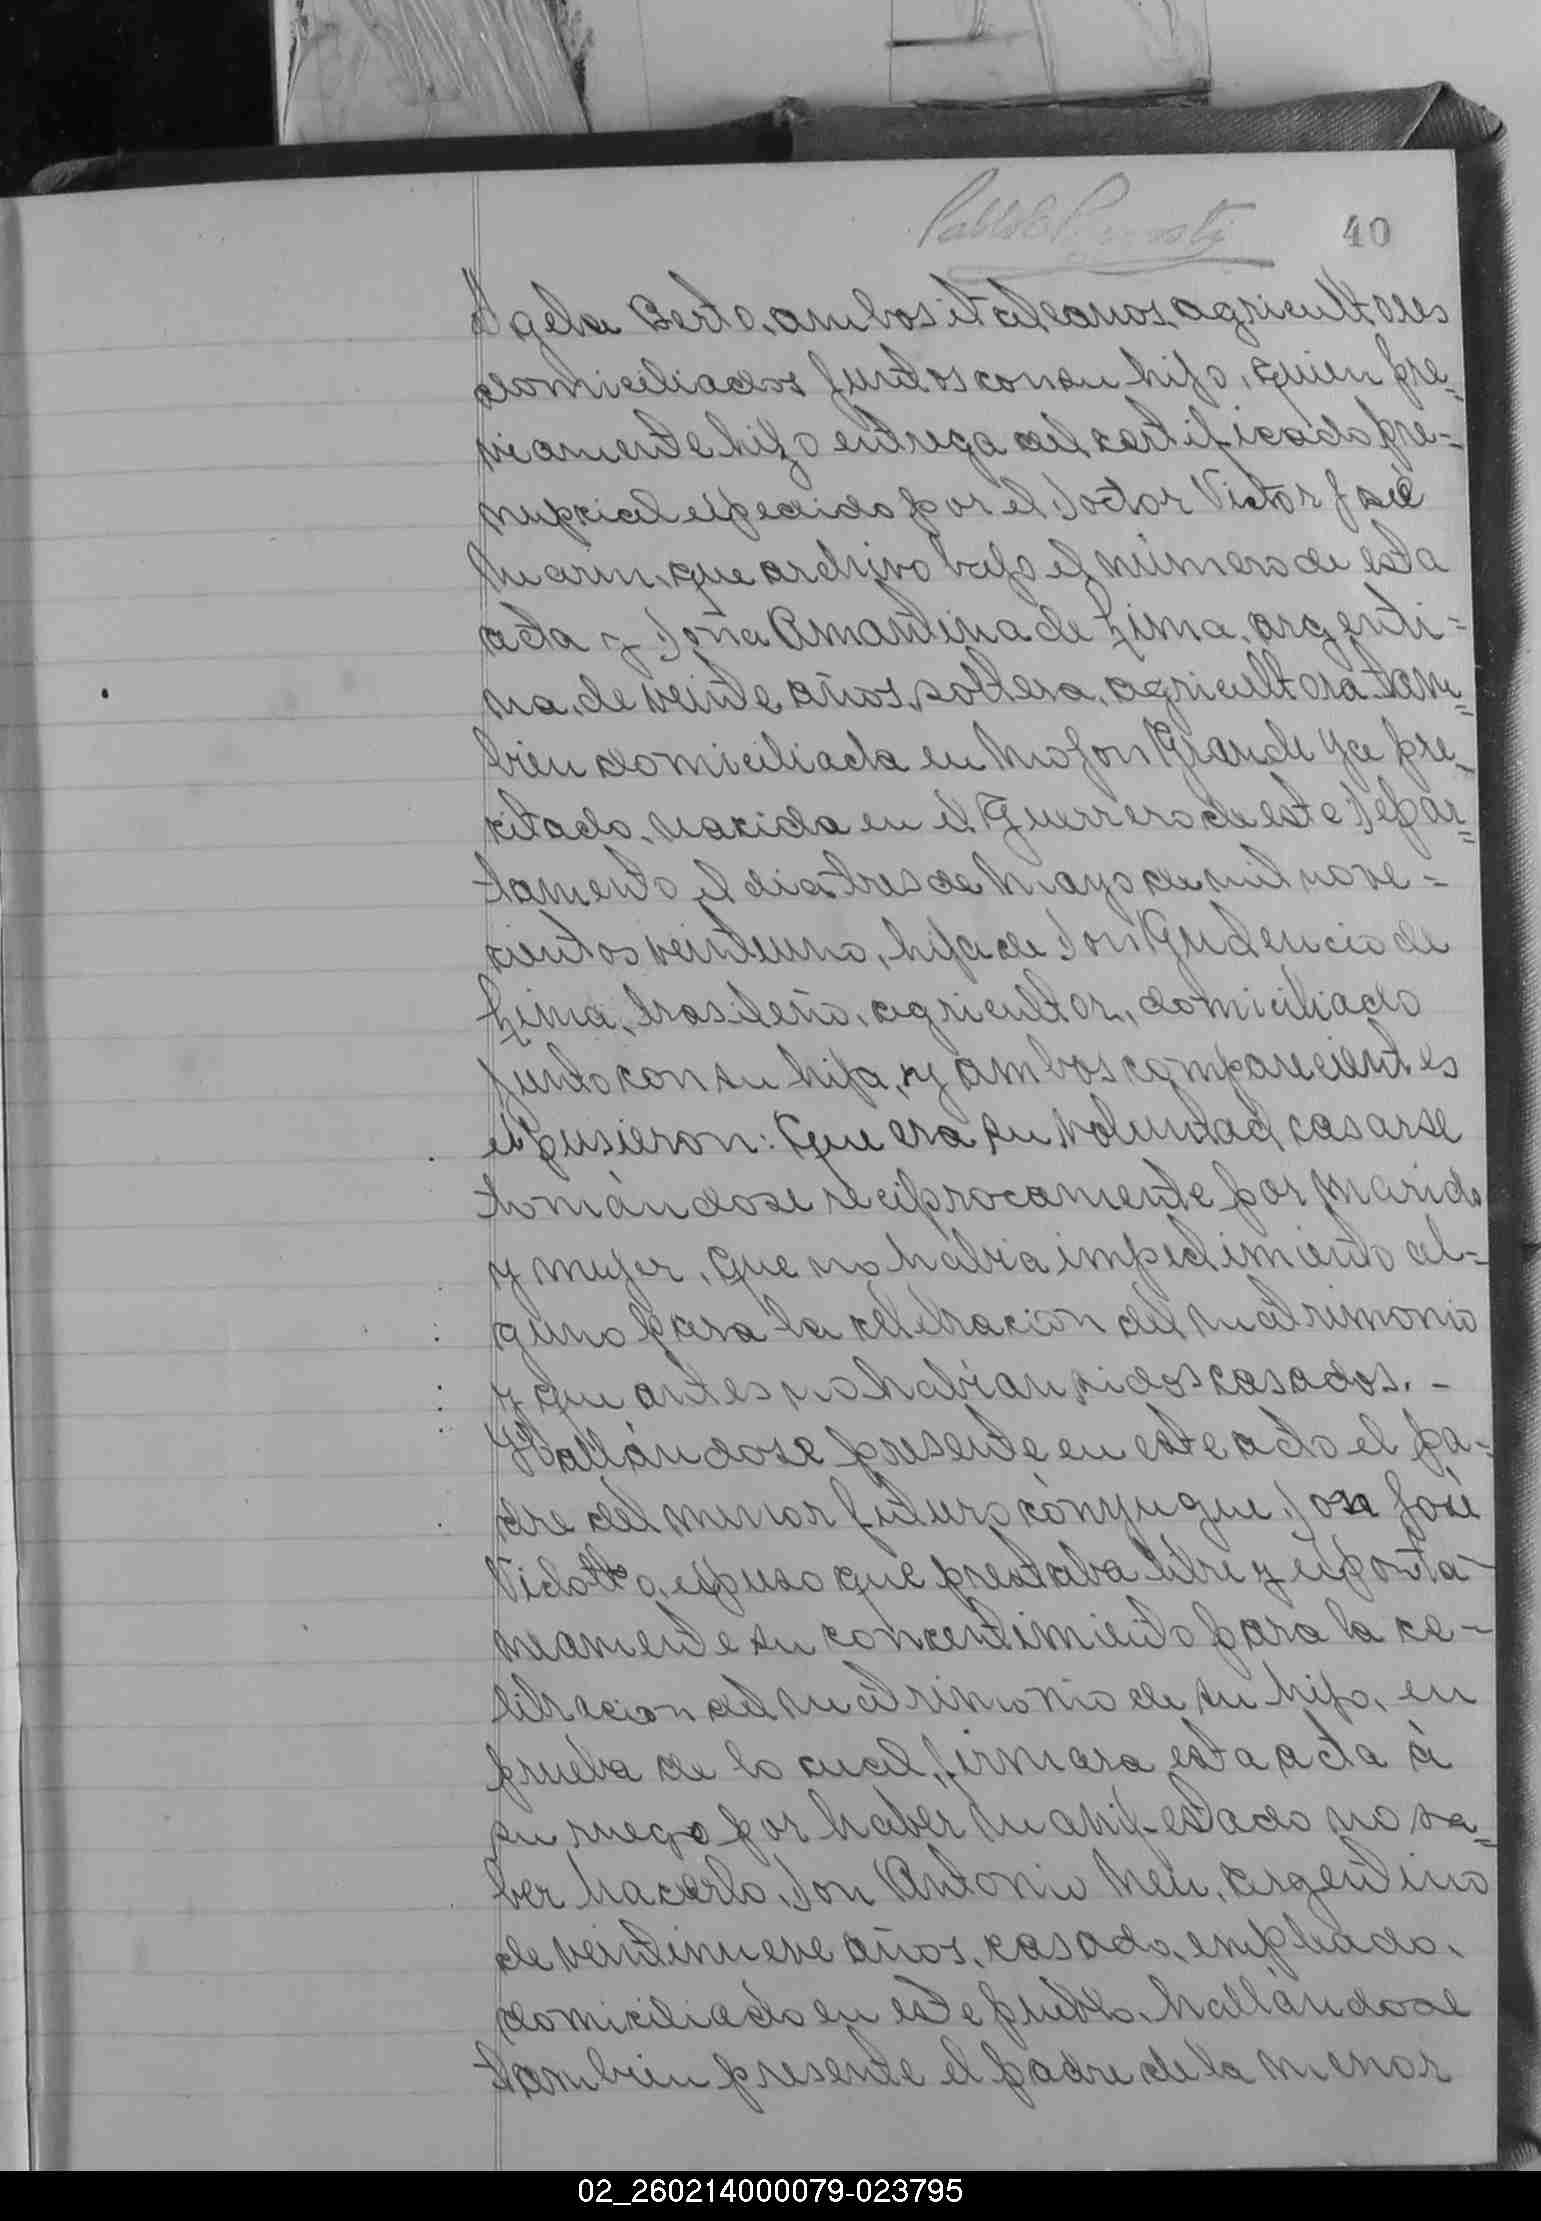 40
Agela Berto, ambos italeanos, agricultores
domiciliados juntos con su hijo, quien pre=
viamente hizo entrega del certificado pre=
nupcial expedido por el Doctor Victor José
Marin, que archivo bajo el número de esta
acta y Doña Amantina de Lima, argenti=
na, de veinte años, soltera, agricultora tam=
bien domiciliada en Mojon Grande ya pre=
citado, nacida en el Guerrero de este Depar=
tamento el dia tres de Mayo de mil nove=
cientos veintiuno, hija de Don Gudencio de
Lima, brasileño, agricultor, domiciliado
junto con su hija, y ambos comparecientes
expusieron: Que era su voluntad casarse
tomándose reciprocamente por marido
y mujer, Que no habia impedimento al=
guno para la celebracion del matrimonio
y que antes no habian sidos casados. -
Hallándose presente en este acto el pa=
dre del menor futuro cónyugue Don José
Vidotto, expuso que prestaba libre y esponta-
neamente su concentimiento para la ce-
lebracion del matrimonio de su hijo, en
prueba de lo cual, firmara esta acta à
su ruego por haber manifestado no sa=
ber hacerlo, Don Antonio Neu, argentino
de veintinueve años, casado, empleado,
domiciliado en este pueblo, hallándose
tambien presente el padre de la menor
02_260214000079-023795